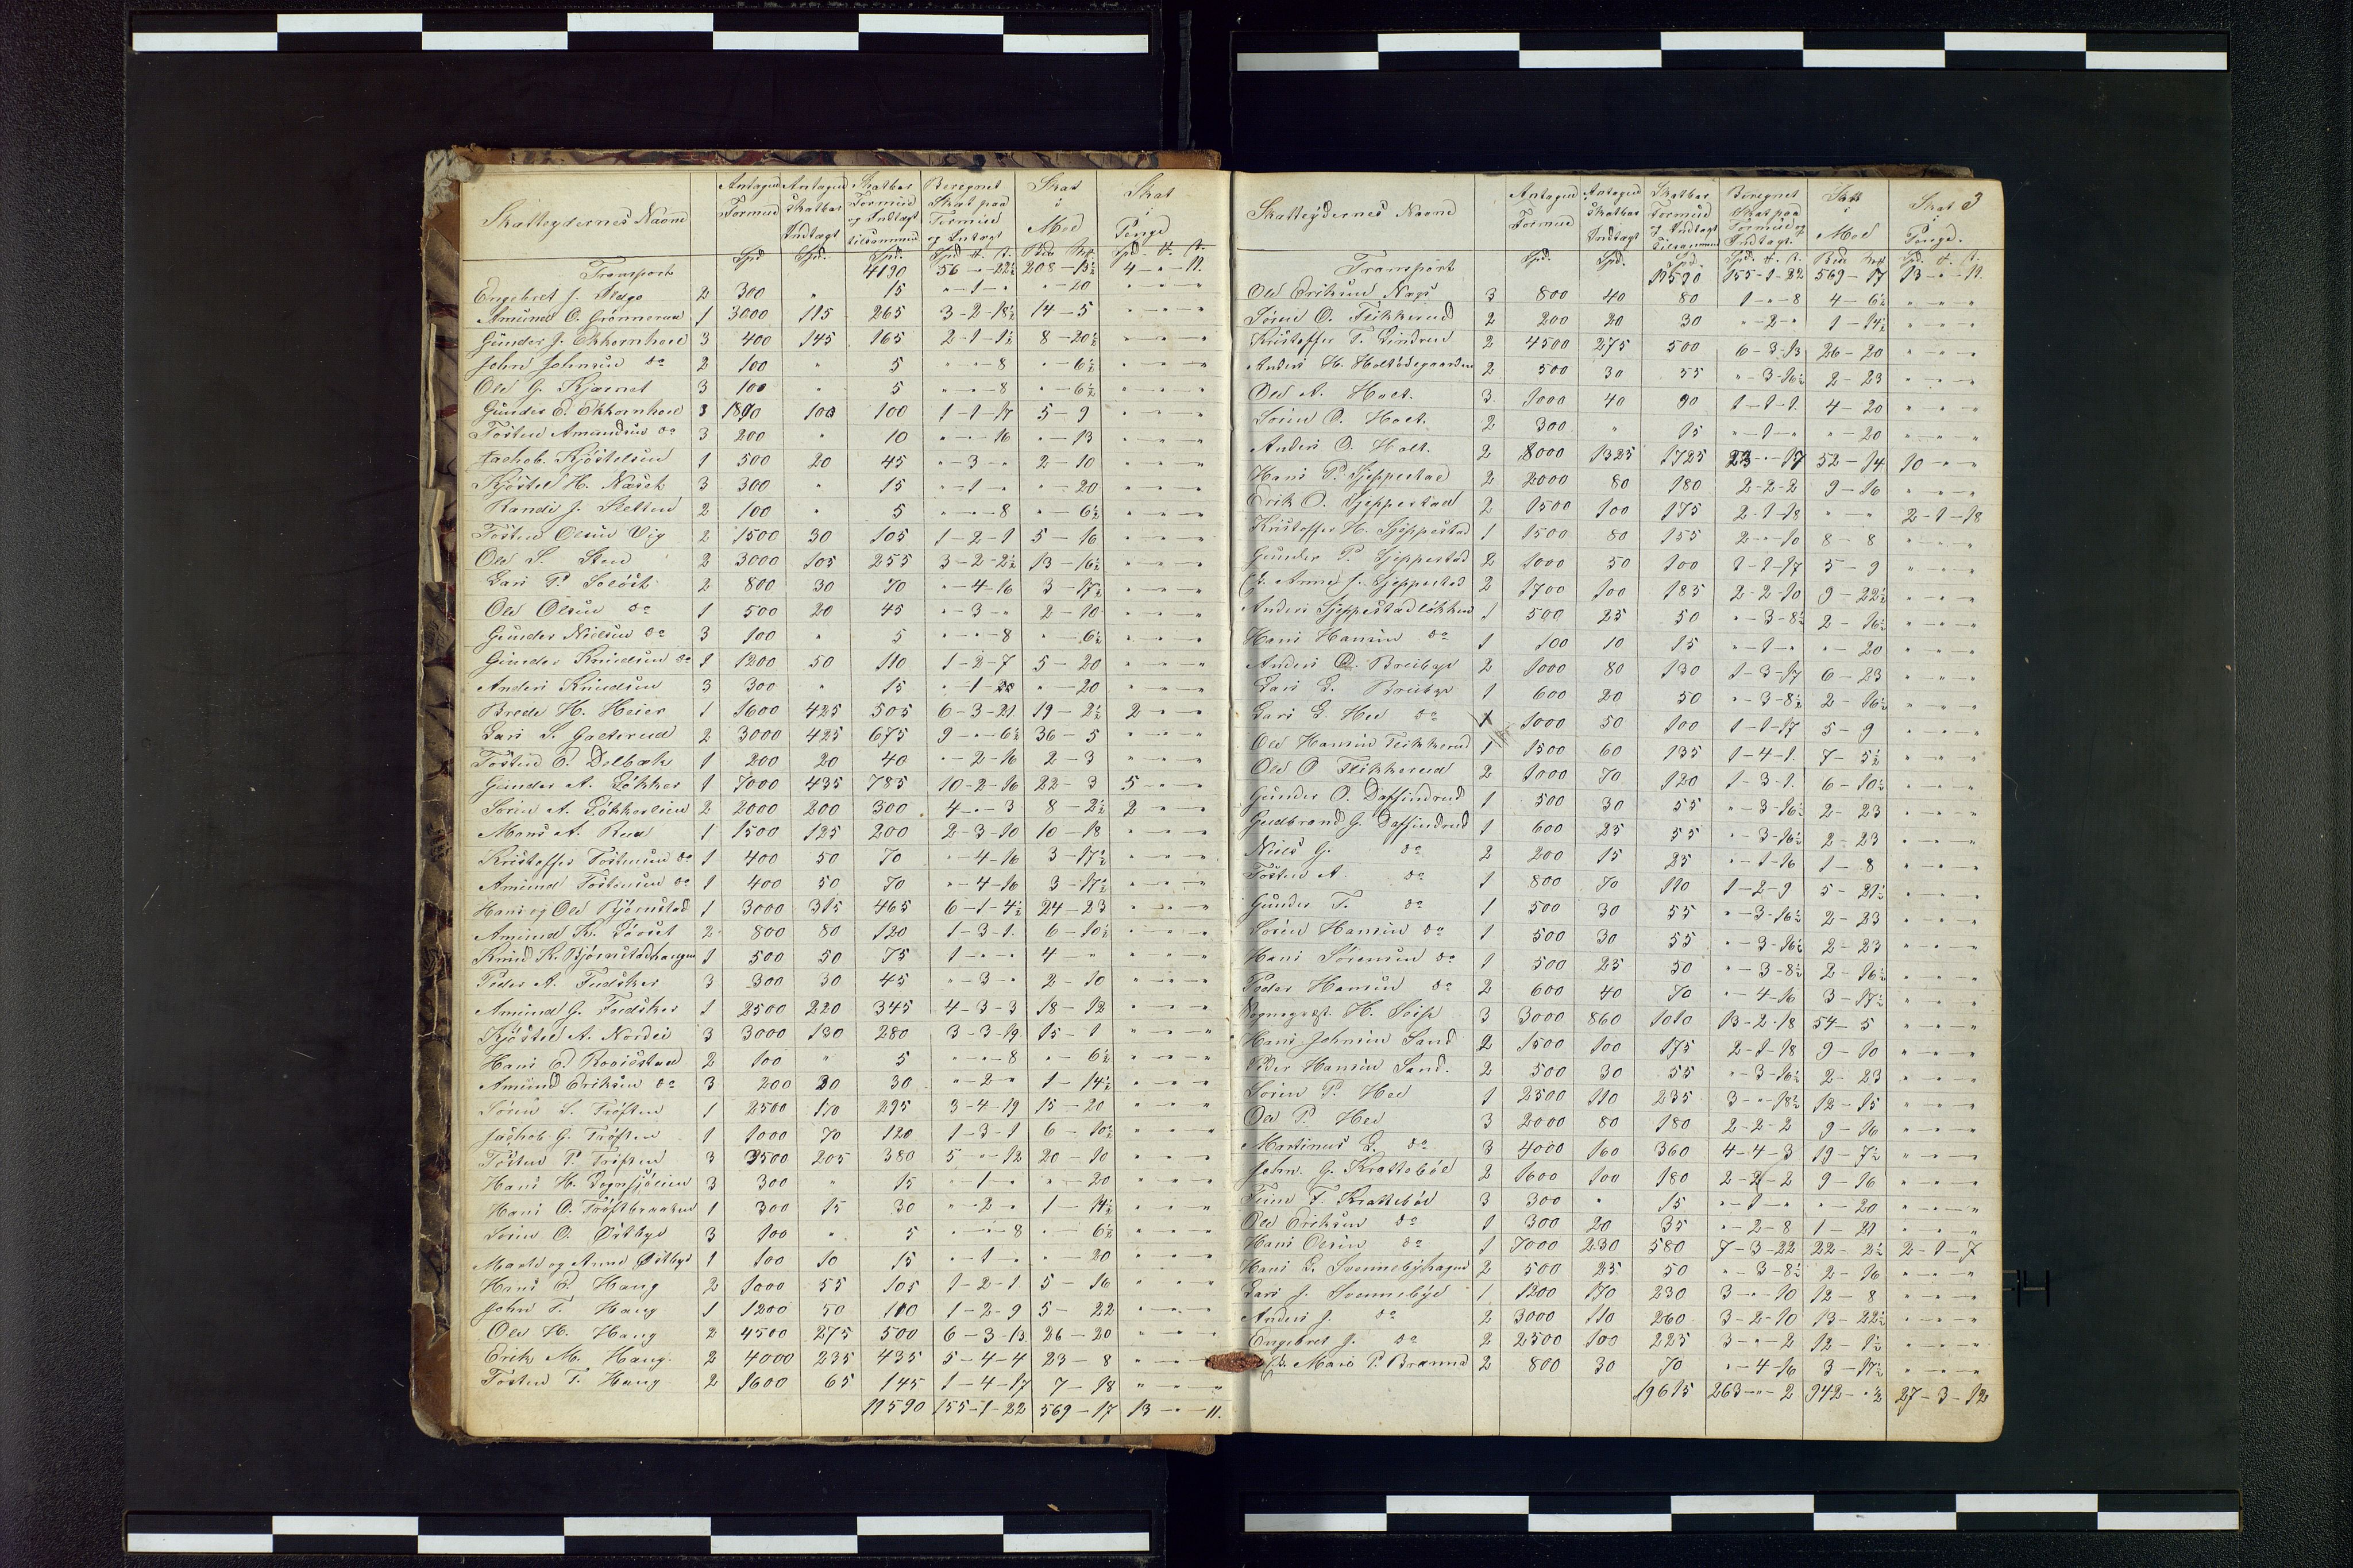 Skatteydernes Navne | Antagen Formue | Antagen Skatbar Indtægt | Skatbar Formue og Indtægt tilsammen | Beregnet Skat paa Formue og Indtægt | Skat i Med | Skat i Penge
Spd | Spd. | Spd.
Transport 4190 56 - " - 22½ 208 - 13½ 4 - " - 11.
Engebret J. 2 300 " 15 " - 1 - " " - 20 " - " - "
Amund O. Grønnerud 1 3000 115 265 3 - 2 - 18½ 14 - 5 " - " - "
Gunder J. Ekkornhoel 3 400 145 165 2 - 1 - 1½ 8 - 20½ " - " - "
John Johnsen do 2 100 " 5 " - " - 8 " - 6½ " - " - "
Ole G. Kjærnet 3 100 " 5 " - " - 8 " - 6½ " - " - "
Gunder E. Ekkornhoel 3 100 100 1 - 1 - 17 5 - 9 " - " - "
Tosten Amundsen do 3 200 " 10 " - " - 16 " - 13 " - " - "
Jachob Kjøstelsen 1 500 20 45 " - 3 - " 2 - 10 " - " - "
Kjøstel H. Næset 3 300 " 15 " - 1 - " " - 20 " - " - "
Randi J. Sletten 2 100 " 5 " - " - 8 " - 6½ " - " - "
Tosten Olsen Vig 2 1500 30 105 1 - 2 - 1 5 - 16 " - " - "
Ole S. Steen 2 3000 105 255 3 - 2 - 2½ 13 - 16½ " - " - "
Lars P. Soløst 2 800 30 70 " - 4 - 16 3 - 17½ " - " - "
Ole Olsen do 1 500 20 45 " - 3 - " 2 - 10 " - " - "
Gunder Nielsen do 3 100 " 5 " - " - 8 " - 6½ " - " - "
Gunder Knudsen do 1 1200 50 110 1 - 2 - 7 5 - 20 " - " - "
Anders Knudsen 3 300 " 15 " - 1 - " - 20 " - " - "
Brede H. Heier 1 1600 425 505 6 - 3 - 21 19 - 2½ 2 - " - "
Lars S. Golterud 2 3000 425 675 9 - " - 6½ 36 - 5 " - " - "
Tosten E. Delbæk 1 200 20 40 " - 2 - 16 2 - 3 " - " - "
Gunder A. Løkker 1 7000 435 785 10 - 2 - 16 22 - 3 5 - " - "
Søren A. Løkkerlien 2 2000 200 300 4 - " - 3 8 - 2½ 2 - " - "
Mons A. Rua 1 1500 125 200 2 - 3 - 10 10 - 18 " - " - "
Kristoffer Tostensen do 1 400 50 70 " - 4 - 16 3 - 17½ " - " - "
Amund Tostensen do 1 400 50 70 " - 4 - 16 3 - 17½ " - " - "
Hans og Ole Bjørnstad 1 3000 315 465 6 - 1 - 4½ 24 - 23 " - " - "
Amund K. Løvset 2 800 80 120 1 - 3 - 1. 6 - 10½ " - " - "
Knud K. Bjørnstadhaugen 1 500 50 75 1 - " - " 4 - " " - " - "
Peder A. Fudsker 3 300 30 45 " - 3 - " 2 - 10 " - " - "
Amund G. Fudsker 1 2500 220 345 4 - 3 - 3 18 - 12 " - " - "
Kjøstel A. Nordli 3 3000 130 280 3 - 3 - 19 15 - 1 " - " - "
Hans E. Rooisstad 2 100 " 5 " - " - 8 " - 6½ " - " - "
Amund Eriksen do 3 200 20 30 " - 2 - " 1 - 14½ " - " - "
Søren S. Trøften 1 2500 170 295 3 - 4 - 19 15 - 20 " - " - "
Jachob G. Trøften 1 1000 70 120 1 - 3 - 1 6 - 10½ " - " - "
Tosten P. Trøften 3 3500 205 380 5 - " - 12 20 - 10 " - " - "
Hans H. Sognsjølien 3 300 " 15 " - 1 - " " - 20 " - " - "
Hans O. Trøftbraaten 1 300 15 30 " - 2 - " 1 - 14½ " - " - "
Søren O. Østbye 3 100 " 5 " - " - 8 " 6½ " - " - "
og Anne Østbye 1 100 10 15 " - 1 - " " - 20 " - " - "
Hans E. Haug 2 1000 55 105 1 - 2 - 1 5 - 16 " - " - "
John T. Haug 1 1200 50 110 1 - 2 - 9 5 - 22 " - " - "
Ole H. Haug 2 4500 275 500 6 - 3 - 13 26 - 20 " - " - "
Erik M. Haug 2 4000 235 435 5 - 4 - 4 23 - 8 " - " - "
Tosten T. Haug 2 1600 65 145 1 - 4 - 17 7 - 18 " - " - "
11590 155 - 1 - 22 569 - 17 13 - " - 11.
3
Skatteydernes Navne | Antagen Formue | Antagen Skatbar Indtægt | Skatbar Formue og Indtægt tilsammen | Beregnet Skat paa Formue og Indtægt. | Skat i Med | Skat i Penge.
Spd. | Spd. | Spd.
Transport 11590 155 - 1 - 22 569 - 17 13 - " - 11.
Ole Eriksen Næss 3 800 40 80 1 - " - 8 4 - 6½ " - " - "
Søren O. Flikkerud 2 200 20 30 " - 2 - " 1 - 14½ " - " - "
Kristoffer T. Lindrud 2 4500 275 500 6 - 3 - 13 26 - 20 " - " - "
Anders H. Holtødegaarden 2 500 30 55 " - 3 - 16½ 2 - 23 " - " - "
Ole A. Holt. 3 1000 40 90 1 - 1 - 1. 4 - 20 " - " - "
Søren O. Holt. 2 300 " 15 " - 1 - " " - 20 " - " - "
Anders O. Holt. 2 8000 1325 1725 23 - " - 17 52 - 14 10 - " - "
Hans P. Sjeppestad 2 2000 80 180 2 - 2 - 2 9 - 16 " - " - "
Erik O. Sjeppestad 2 1500 100 175 2 - 1 - 18 " - " 2 - 1 - 18
Kristoffer H. Sjeppestad 1 1500 80 155 2 - " - 10 8 - 8 " - " - "
Gunder P. Sjeppestad 2 1000 50 100 1 - 1 - 17 5 - 9 " - " - "
E. Anne J. Sjeppestad 2 1700 100 185 2 - 2 - 10 9 - 22½ " - " - "
Anders Sjeppestadløkken 1 500 25 50 " - 3 - 8½ 2 - 16½ " - " - "
Hans Hansen do 1 100 10 15 " - 1 - " " - 20 " - " - "
Anders O. Breibye 2 1000 80 130 1 - 3 - 17 6 - 23 " - " - "
Lars L. Breibye 1 600 20 50 " - 3 - 8½ 2 - 16½ " - " - "
Lars L. Hee do 1 1000 50 100 1 - 1 - 17 5 - 9 " - " - "
Ole Hansen Flikkerud 1 1500 60 135 1 - 4 - 1. 7 - 5½ " - " - "
Ole O Flikkerud 2 1000 70 120 1 - 3 - 1. 6 - 10½ " - " - "
Gunder O. Daffindrud 1 500 30 55 " - 3 - 16½ 2 - 23 " - " - "
Gudbrand G. Daffindrud 1 600 25 55 " - 3 - 16½ 2 - 23 " - " - "
Niels G. do 2 200 15 25 " - 1 - 16 1 - 8 " - " - "
Tosten A. do 1 800 70 110 1 - 2 - 9 5 - 21½ " - " - "
Gunder T. do 1 500 30 55 " - 3 - 16½ 2 - 23 " - " - "
Søren Hansen do 1 500 30 55 " - 3 - 16½ 2 - 23 " - " - "
Hans Sørensen do 1 500 25 50 " - 3 - 8½ 2 - 16½ " - " - "
Peder Hansen do 2 600 40 70 " - 4 - 16 3 - 17½ " - " - "
Sognepræst H. 3 3000 860 1010 13 - 2 - 18 54 - 5 " - " - "
Hans Johnsen Sand 2 1500 100 175 2 - 1 - 18 9 - 10 " - " - "
Peder Hansen Sand. 2 500 30 55 " - 3 - 16½ 2 - 23 " - " - "
Søren P. Hee 1 2500 110 235 3 - " - 18½ 12 - 15 " - " - "
Ole P. Hee 3 2000 80 180 2 - 2 - 2 9 - 16 " - " - "
Martinus L. do 3 4000 160 360 4 - 4 - 3 19 - 7½ " - " - "
John G. Krattebøl 2 1600 100 180 2 - 2 - 2 9 - 16 " - " - "
Finn F. Krattebøl 3 300 " 15 " - 1 - " " - 20 " - " - "
Ole Eriksen do 1 300 20 35 " - 2 - 8 1 - 21 " - " - "
Hans Olsen do 1 7000 230 580 7 - 3 - 22 22 - 2½ 2 - 1 - 7
Hans L. Svennebyhagen 2 500 25 50 " - 3 - 8½ 2 - 16 " - " - "
Lars J. Svennebye 1 1200 170 230 3 - " - 10 12 - 8 " - " - "
Anders J. do 2 3000 110 260 3 - 2 - 10 13 - 22½ " - " - "
Engebret J. do 2 2500 100 225 3 - " - 2 12 - 1½ " - " - "
E. Mari P. Brænna 2 800 30 70 " - 4 - 16 3 - 17½ " - " - "
19615 263 - " - 2 942 - " ½ 27 - 3 - 12